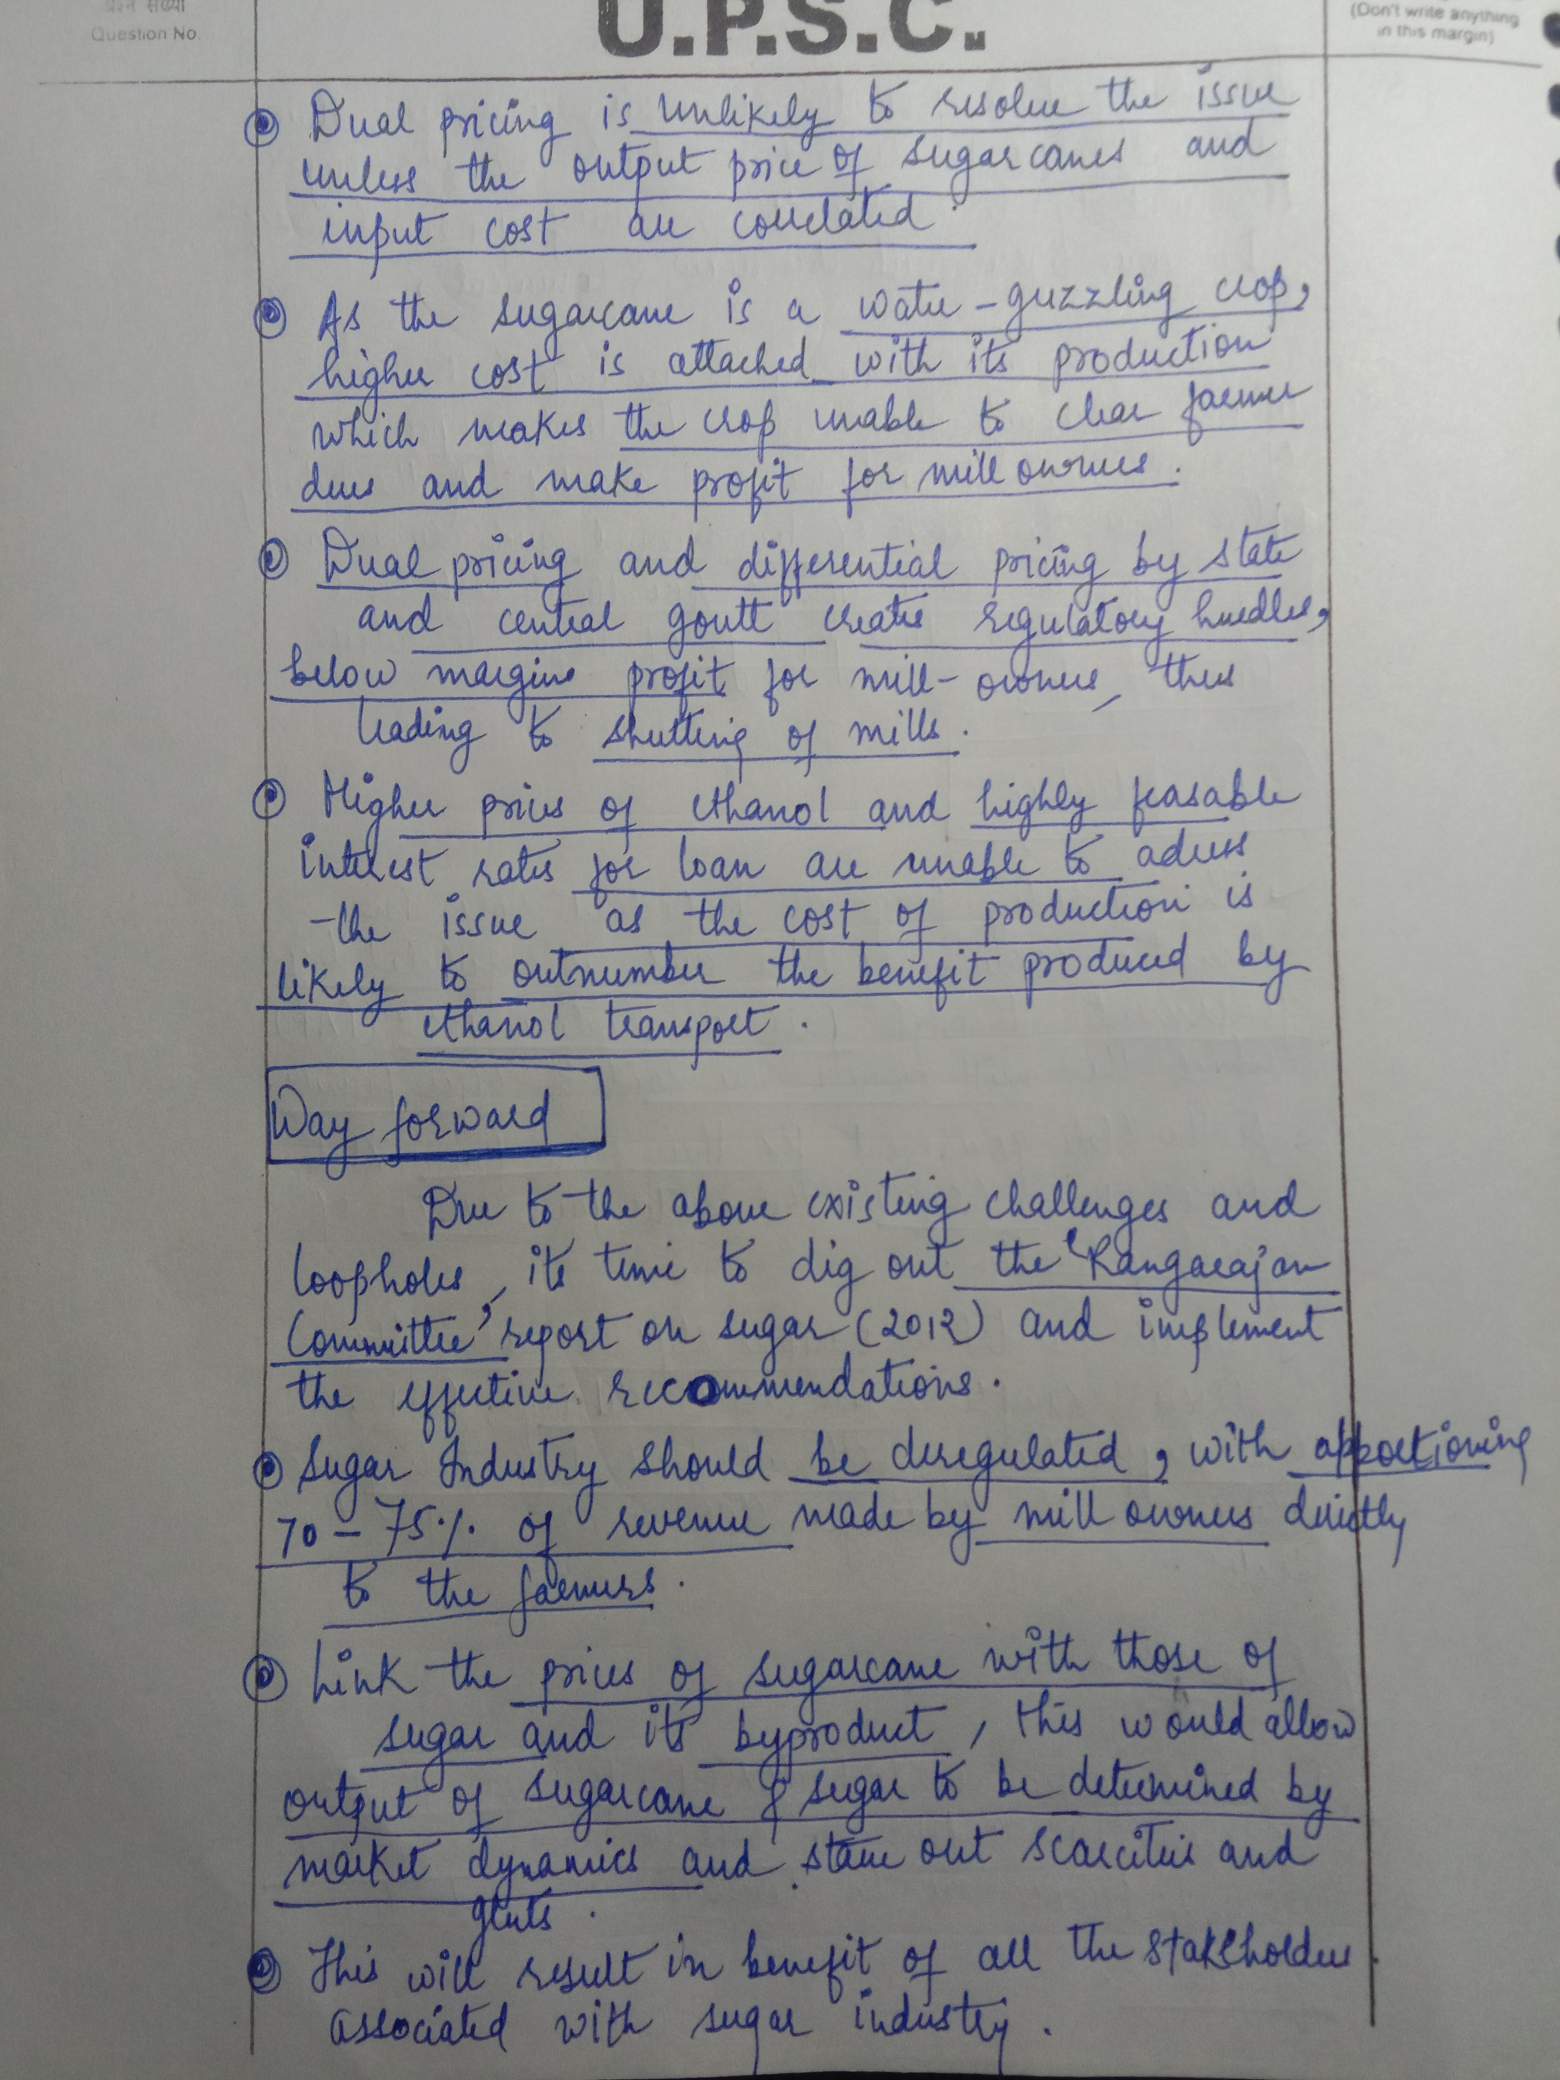 प्रश्न संख्या
Question No.
U.P.S.C.
(Don't write anything
in this margin)
Dual pricing is unlikely to resolve the issue
unless the output price of sugarcanes and
input cost are correlated.
As the sugarcane is a water-guzzling crop,
higher cost is attached with its production
which makes the crop unable to clear farmer
dues and make profit for mill owners.
Dual pricing and differential pricing by state
and central govtt creates regulatory hurdles,
below margins profit for mill-owners, thus
leading to shutting of mills.
Higher prices of ethanol and highly feasable
interest rates for loan are unable to adress
the issue as the cost of production is
likely to outnumber the benefit produced by
ethanol transport.
Way forward
Due to the above existing challenges and
loopholes, its time to dig out the 'Rangarajan
Committee' report on sugar (2012) and implement
the effective recommendations.
Sugar Industry should be deregulated, with apportioning
70-75% of revenue made by mill owners directly
to the farmers.
Link the prices of sugarcane with those of
sugar and its byproduct, this would allow
output of sugarcane & sugar to be determined by
market dynamics and stave out scarcities and
gluts.
This will result in benefit of all the stakeholders
associated with sugar industry.